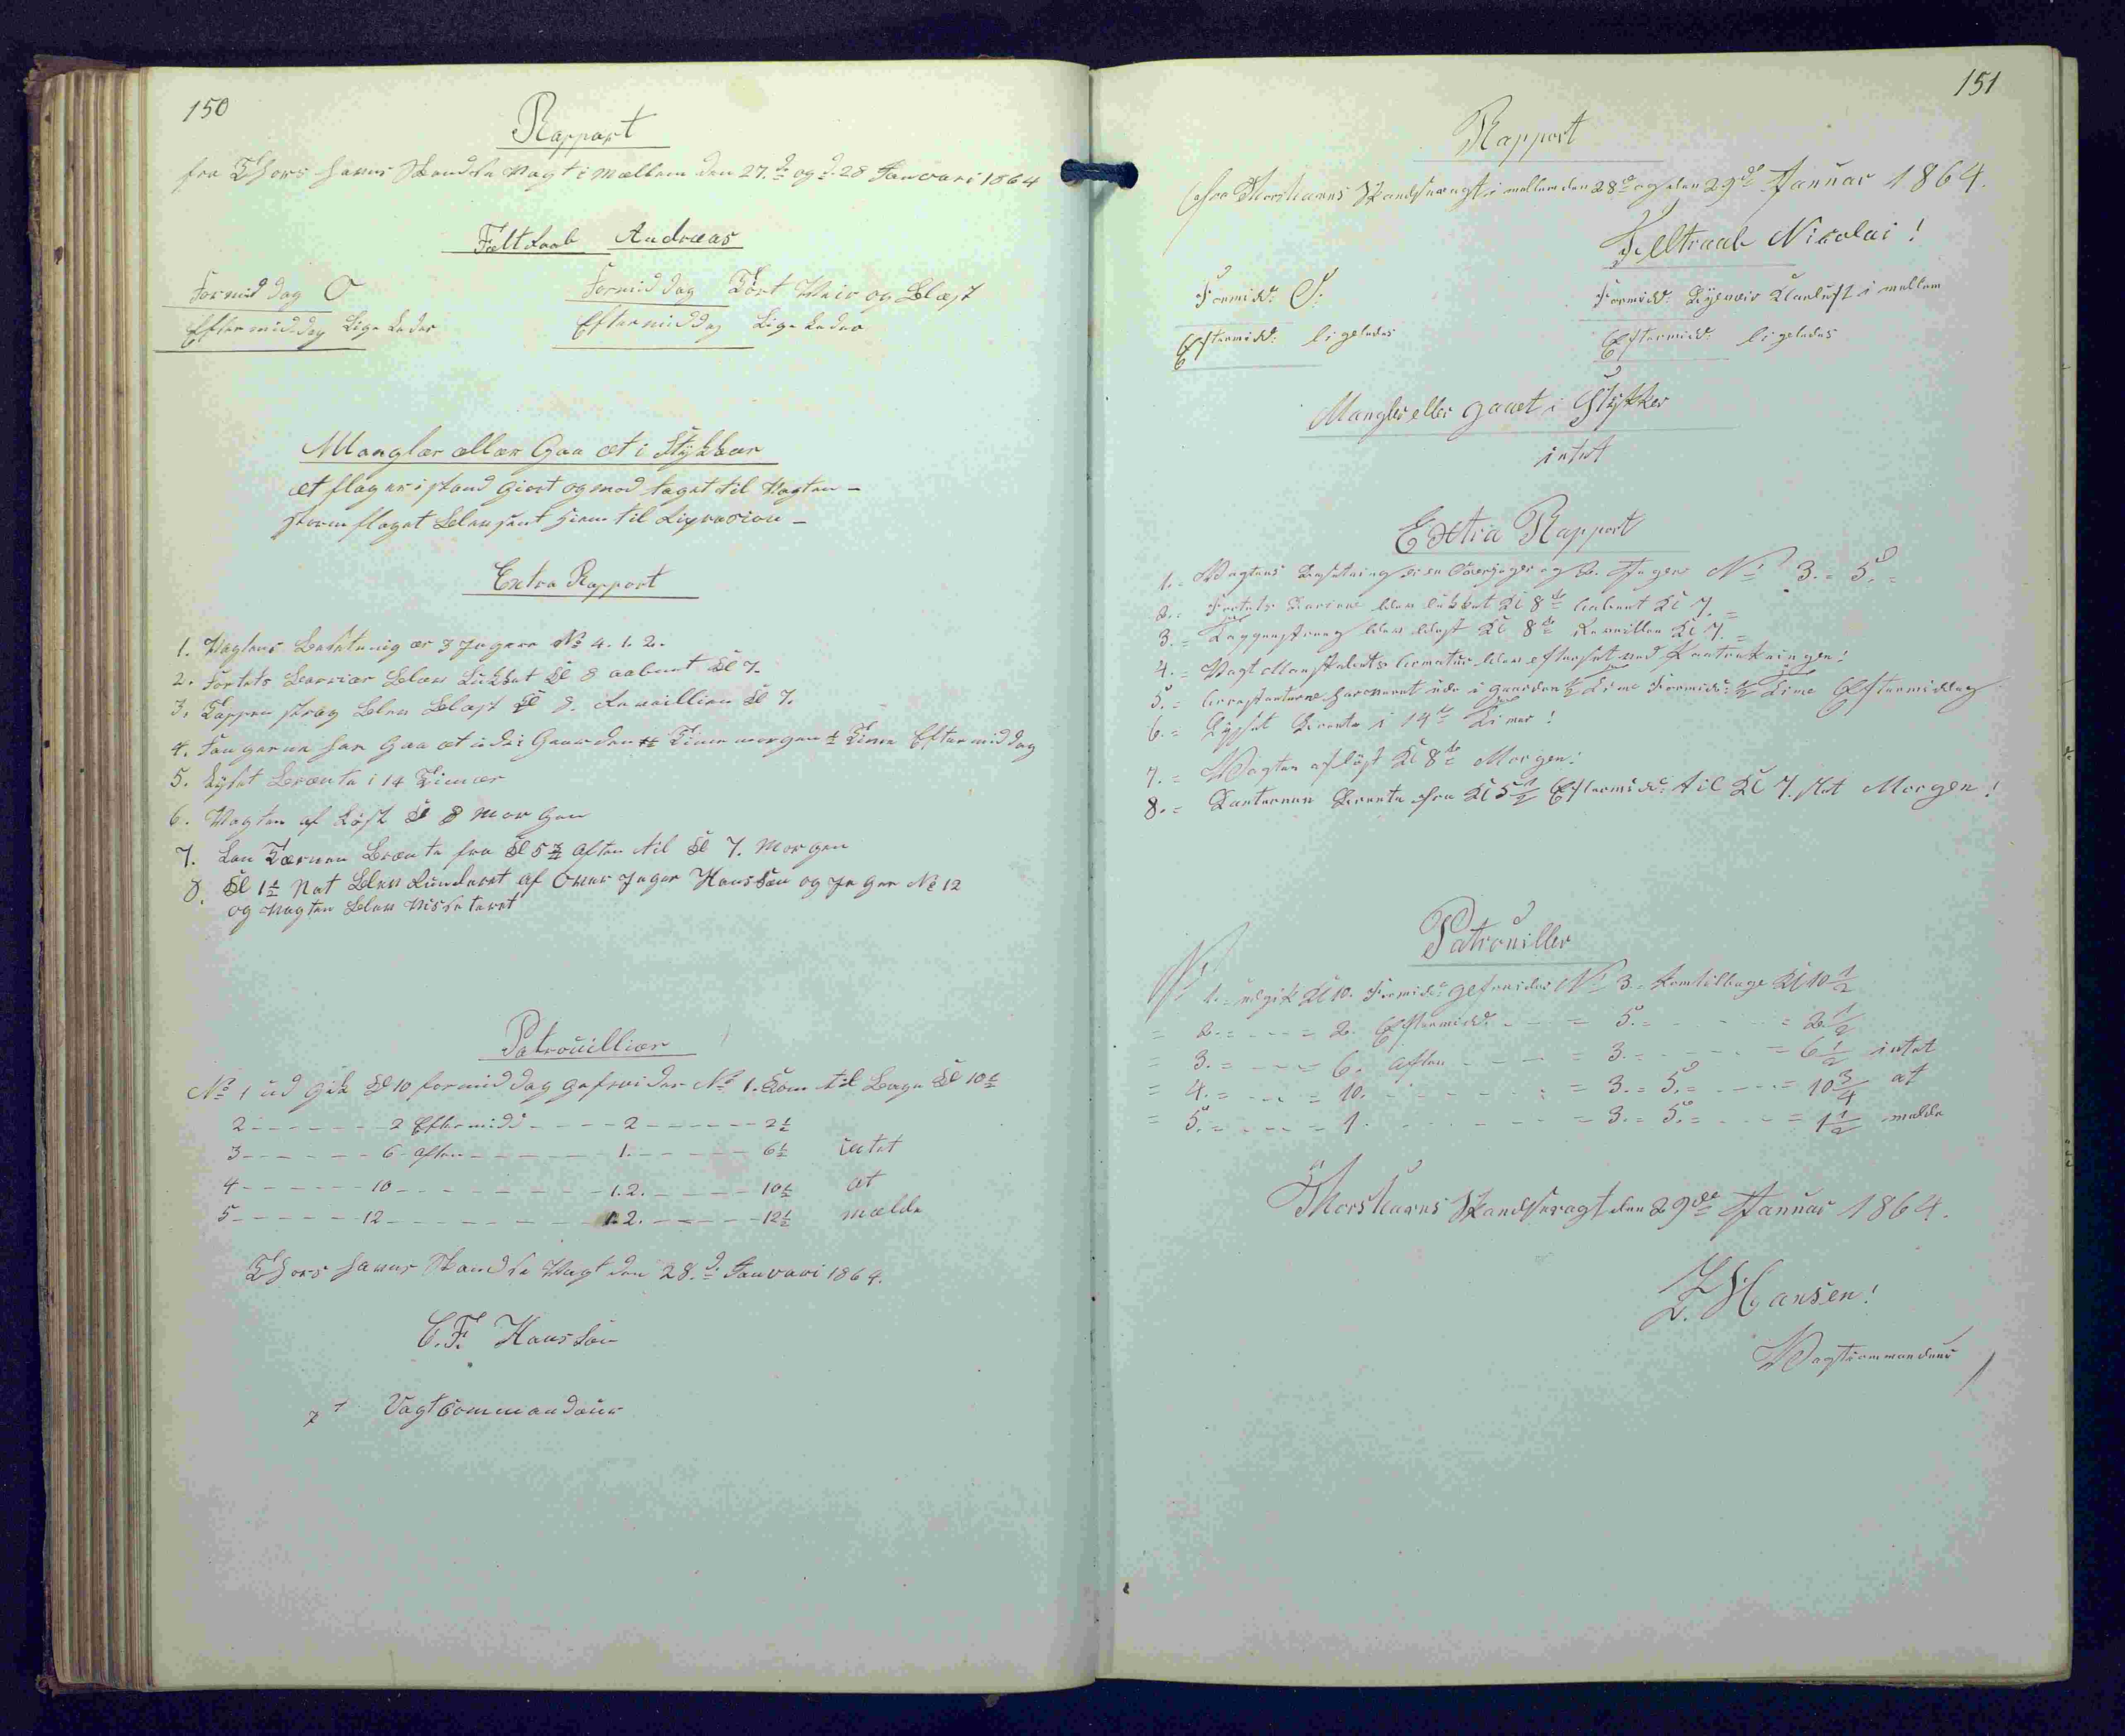 150
Rapport
fra Thorshavns Skandse Vagt i mællem den 27.de og d. 28 Januari 1864
Feltraab Andreas
Formiddag O Formiddag Tört Veir og Blæst
Eftermiddag Lige Ledes Eftermiddag Lige Ledes
Manglær ællær Gaaæt i Stÿkker
et flag er i stand Giort og mod taget til Vagten -
storm flaget Blev sent hiem til
Extra Rapport
1. Vagtens Besætning ær 3 Jægere No 4. 1. 2.
2. Fortets Barriær Blæv Lukket Kl 8 aabent Kl 7.
3. Tappen stræg Blev Blæst Kl 8. Reveillien Kl 7.
4. Fangerne har Gaaæt ude i Gaarden ½ Time morgen ½ Time Eftermiddag
5. Lÿset Brænte i 14 Timær
6. Vagten af Löst Kl 8 Morgen
7. Lan Tærnen Brænte fra Kl 5½ Aften til Kl 7. Morgen
8. Kl 1½ Nat Blev Runderet af Over Jæger Hanssen og Jæger No 12
og Vagten Blev Visseteret
Patrouilliær
No 1 ud Gik Kl 10 formiddag Gefreider No 1. Kom til Bage Kl 10½
2 - - - - - - 2 Eftermidd - - - - 2 - - - - - - 2½
3 - - - - - - 6 Aften - - - - - - 1. - - - - - 6½ intet
4 - - - - - - 10 - - - - - - - - 1.2. - - - - - 10½ at
5 - - - - - - 12 - - - - - - - - 1.2. - - - - - 12½ mælde
Thorshavns Skandse Vagt den 28.d Januari 1864.
C.F. Hanssen
Vagtcommandeur
151
Rapport
fra Thorshavns Skandsevagt i mellem den 28de og den 29de Januar 1864.
Feltraab Nicolai!
Formidd: Formidd: i mellem
Eftermidd: ligeledes Eftermidd: ligeledes
Mangler eller gaaet i Stÿkker
intet
Extra Rapport
1. = Vagtens Besætning er en Overjæger og 2. Jæger No 3. = 5. =
2. = Fortets Barriere blev lukket Kl 8te aabent Kl 7. =
3. = Tappenstreg blev blæst Kl 8te Reveillen Kl 7. =
4. = Vagt Mandskabets Armatur blev efterset ved Fratrædningen!
5. = Arrestanterne har været ude i Gaarden ½ Time Formidd: ½ Time Eftermiddag
6. = Lÿset Brænte i 14te Timer!
7. = Vagten aflöst Kl 8te Morgen!
8. = Lanternen Brænte fra Kl 5½ Eftermidd: til Kl 7. slet Morgen!
Patrouiller
No 1. = udgik Kl 10. Formidd: gefreider No 3. = kom tilbage Kl 10½
= 2. = - - - = 2. Eftermidd. - - = 5. = - - - = 2½
= 3. = - - - = 6. Aften - - - - = 3. = - - - = 6½ intet
= 4. = - - - = 10. - - - - - - = 3. = 5. = - - - = 10¾ at
= 5. = - - - = 1. - - - - - - = 3. = 5. = - - - = 1½ melde
Thorshavns Skandsevagt den 29de Januar 1864.
Z. Hansen!
Vagtcommandeur